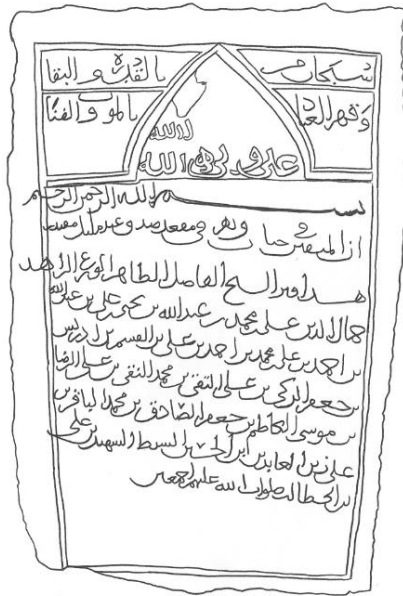 سبحان من بالقدرة والبقا
وقهر العباد بالموت والفنا
علي ولي الله
بسم الله الرحمن الرحيم
ان المتقين في جنات ونهر في مقعد صدق عند مليك مقتدر
هذا قبر الشيخ الفاضل الطاهر الورع الزاهد
جمال الدين علي محمد بن عبدالله بن يحيى بن علي بن عبدالله
بن احمد بن علي محمد بن احمد بن علي بن القسم بن ادريس
بن جعفر الزكي بن علي التقي بن محمد النقي بن علي الرضا
بن موسى الكاظم بن جعفر الصادق بن محمد الباقر بن
علي زين العابدين ابن الحسين السبط الشهيد بن علي
بن ابي طالب صلوات الله عليهم اجمعين